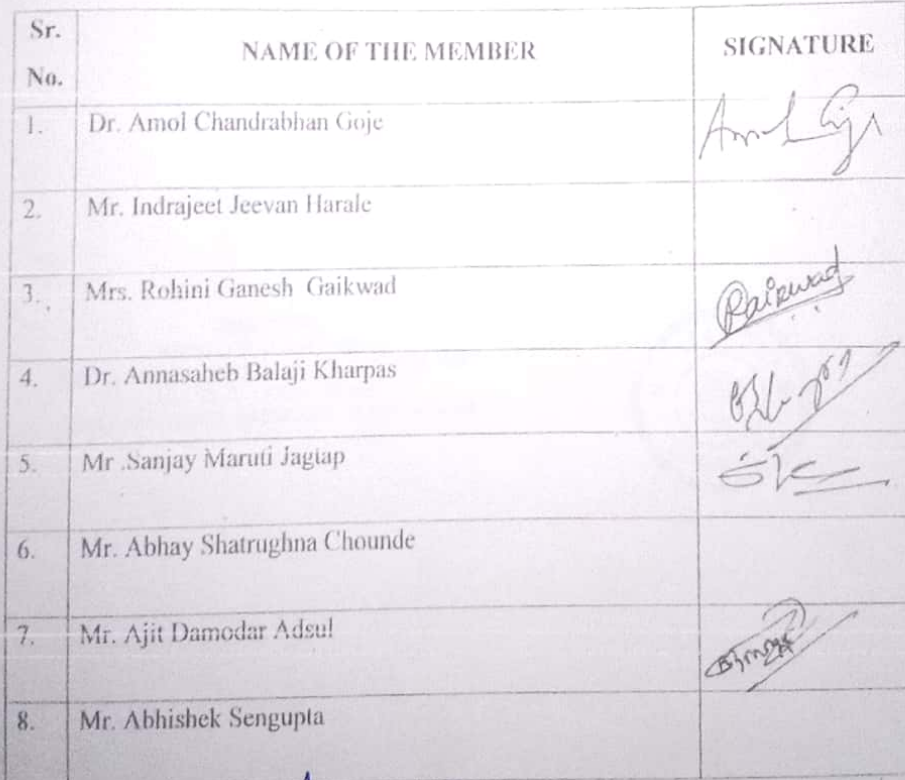 Sr. No. NAME OF THE MEMBER SIGNATURE
1. Dr. Amol Chandrabhan Goje
2. Mr. Indrajeet Jeevan Harale
3. Mrs. Rohini Ganesh Gaikwad Gaikwad
4. Dr. Annasaheb Balaji Kharpas
5. Mr .Sanjay Maruti Jagtap
6. Mr. Abhay Shatrughna Chounde
7. Mr. Ajit Damodar Adsul
8. Mr. Abhishek Sengupta